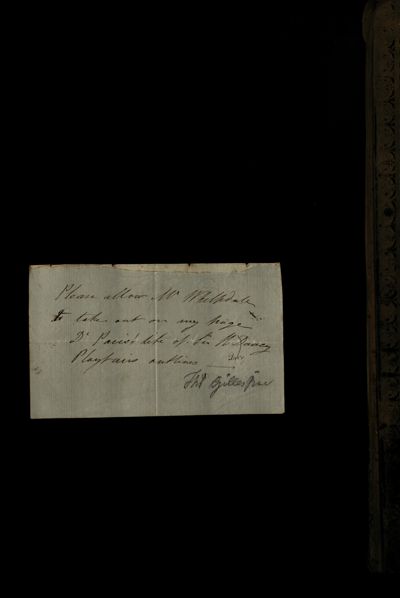 Please allow Mr Whelpdale
to take out on my page
Dr Paris's life of Sir H Davey
Playfairs outlines
Thos Gillespie